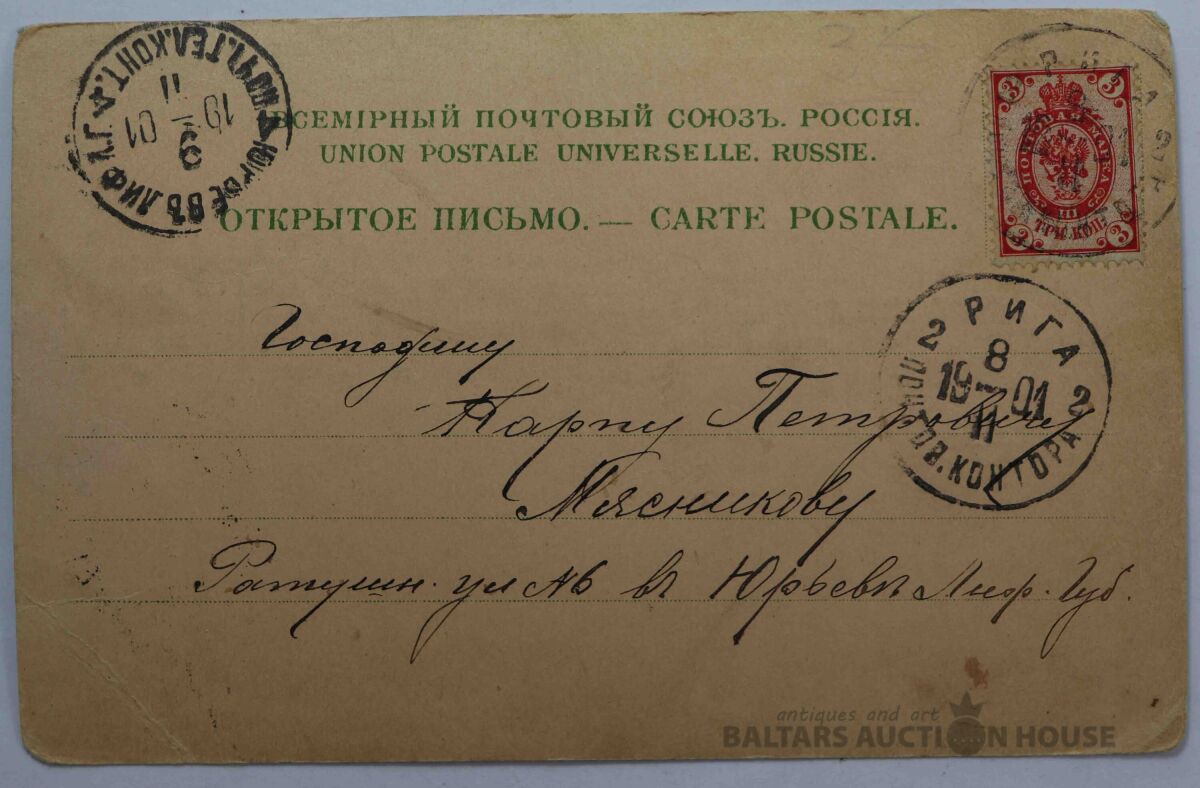 ВСЕМІРНЫЙ ПОЧТОВЫЙ СОЮЗЪ. РОССІЯ.
UNION POSTALE UNIVERSELLE. RUSSIE.
ОТКРЫТОЕ ПИСЬМО. — CARTE POSTALE.
ЮРЬЕВЪ ЛИФЛ. Г. ПОЧТ. ТЕЛ. КОНТ.
9
19 01
11
3 3
ПОЧТОВАЯ МАРКА
ТРИ КОП.
3 3
РИГА
2 2
8
19 01
11
ПОЧТОВ. КОНТОРА
Господину
Карпу Петровичу
Мясникову
Ратушн. ул № 6 въ Юрьевѣ Лиф. Губ.
antiques and art
BALTARS AUCTION HOUSE